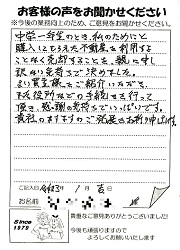 お客様の声をお聞かせください
※今後の業務向上のため、ご意見をお聞かせください。
中学一年生のとき、私のためにと
購入してもらえた不動産を利用する
ことなく売却することを、親に申し
訳ない気持ちで決めました。
よい買主様とご紹介いただき、
私を役所などでの手続きも行って
頂き、感謝の気持ちでいっぱいです。
貴社のますますのご発展をお祈り申し上げます。
ご記入日 1月 吉日
お名前
Since
1979
貴重なご意見ありがとうございました!
今後も頑張りますので
よろしくお願いいたします